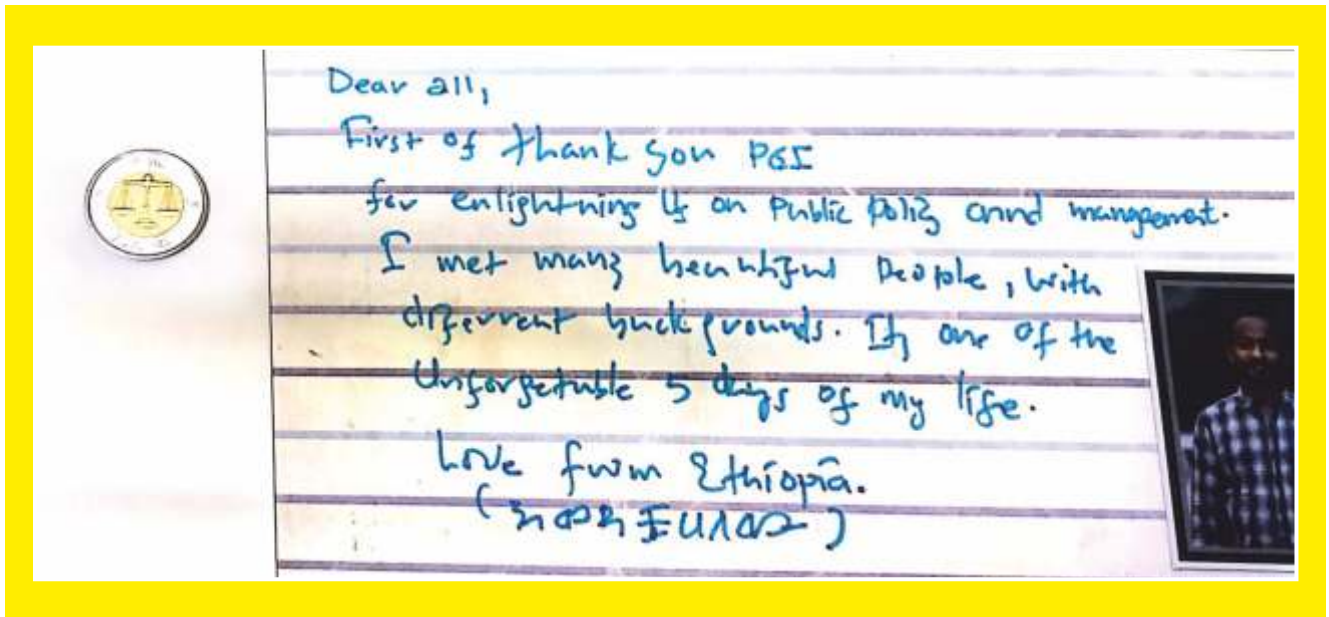 Dear all,
First of thank you PGI
for enlightning us on Public Policy annd mangement.
I met many beautiful People, with
differrent backgrounds. Its one of the
Unforgetable 5 days of my life.
Love from Ethiopia.